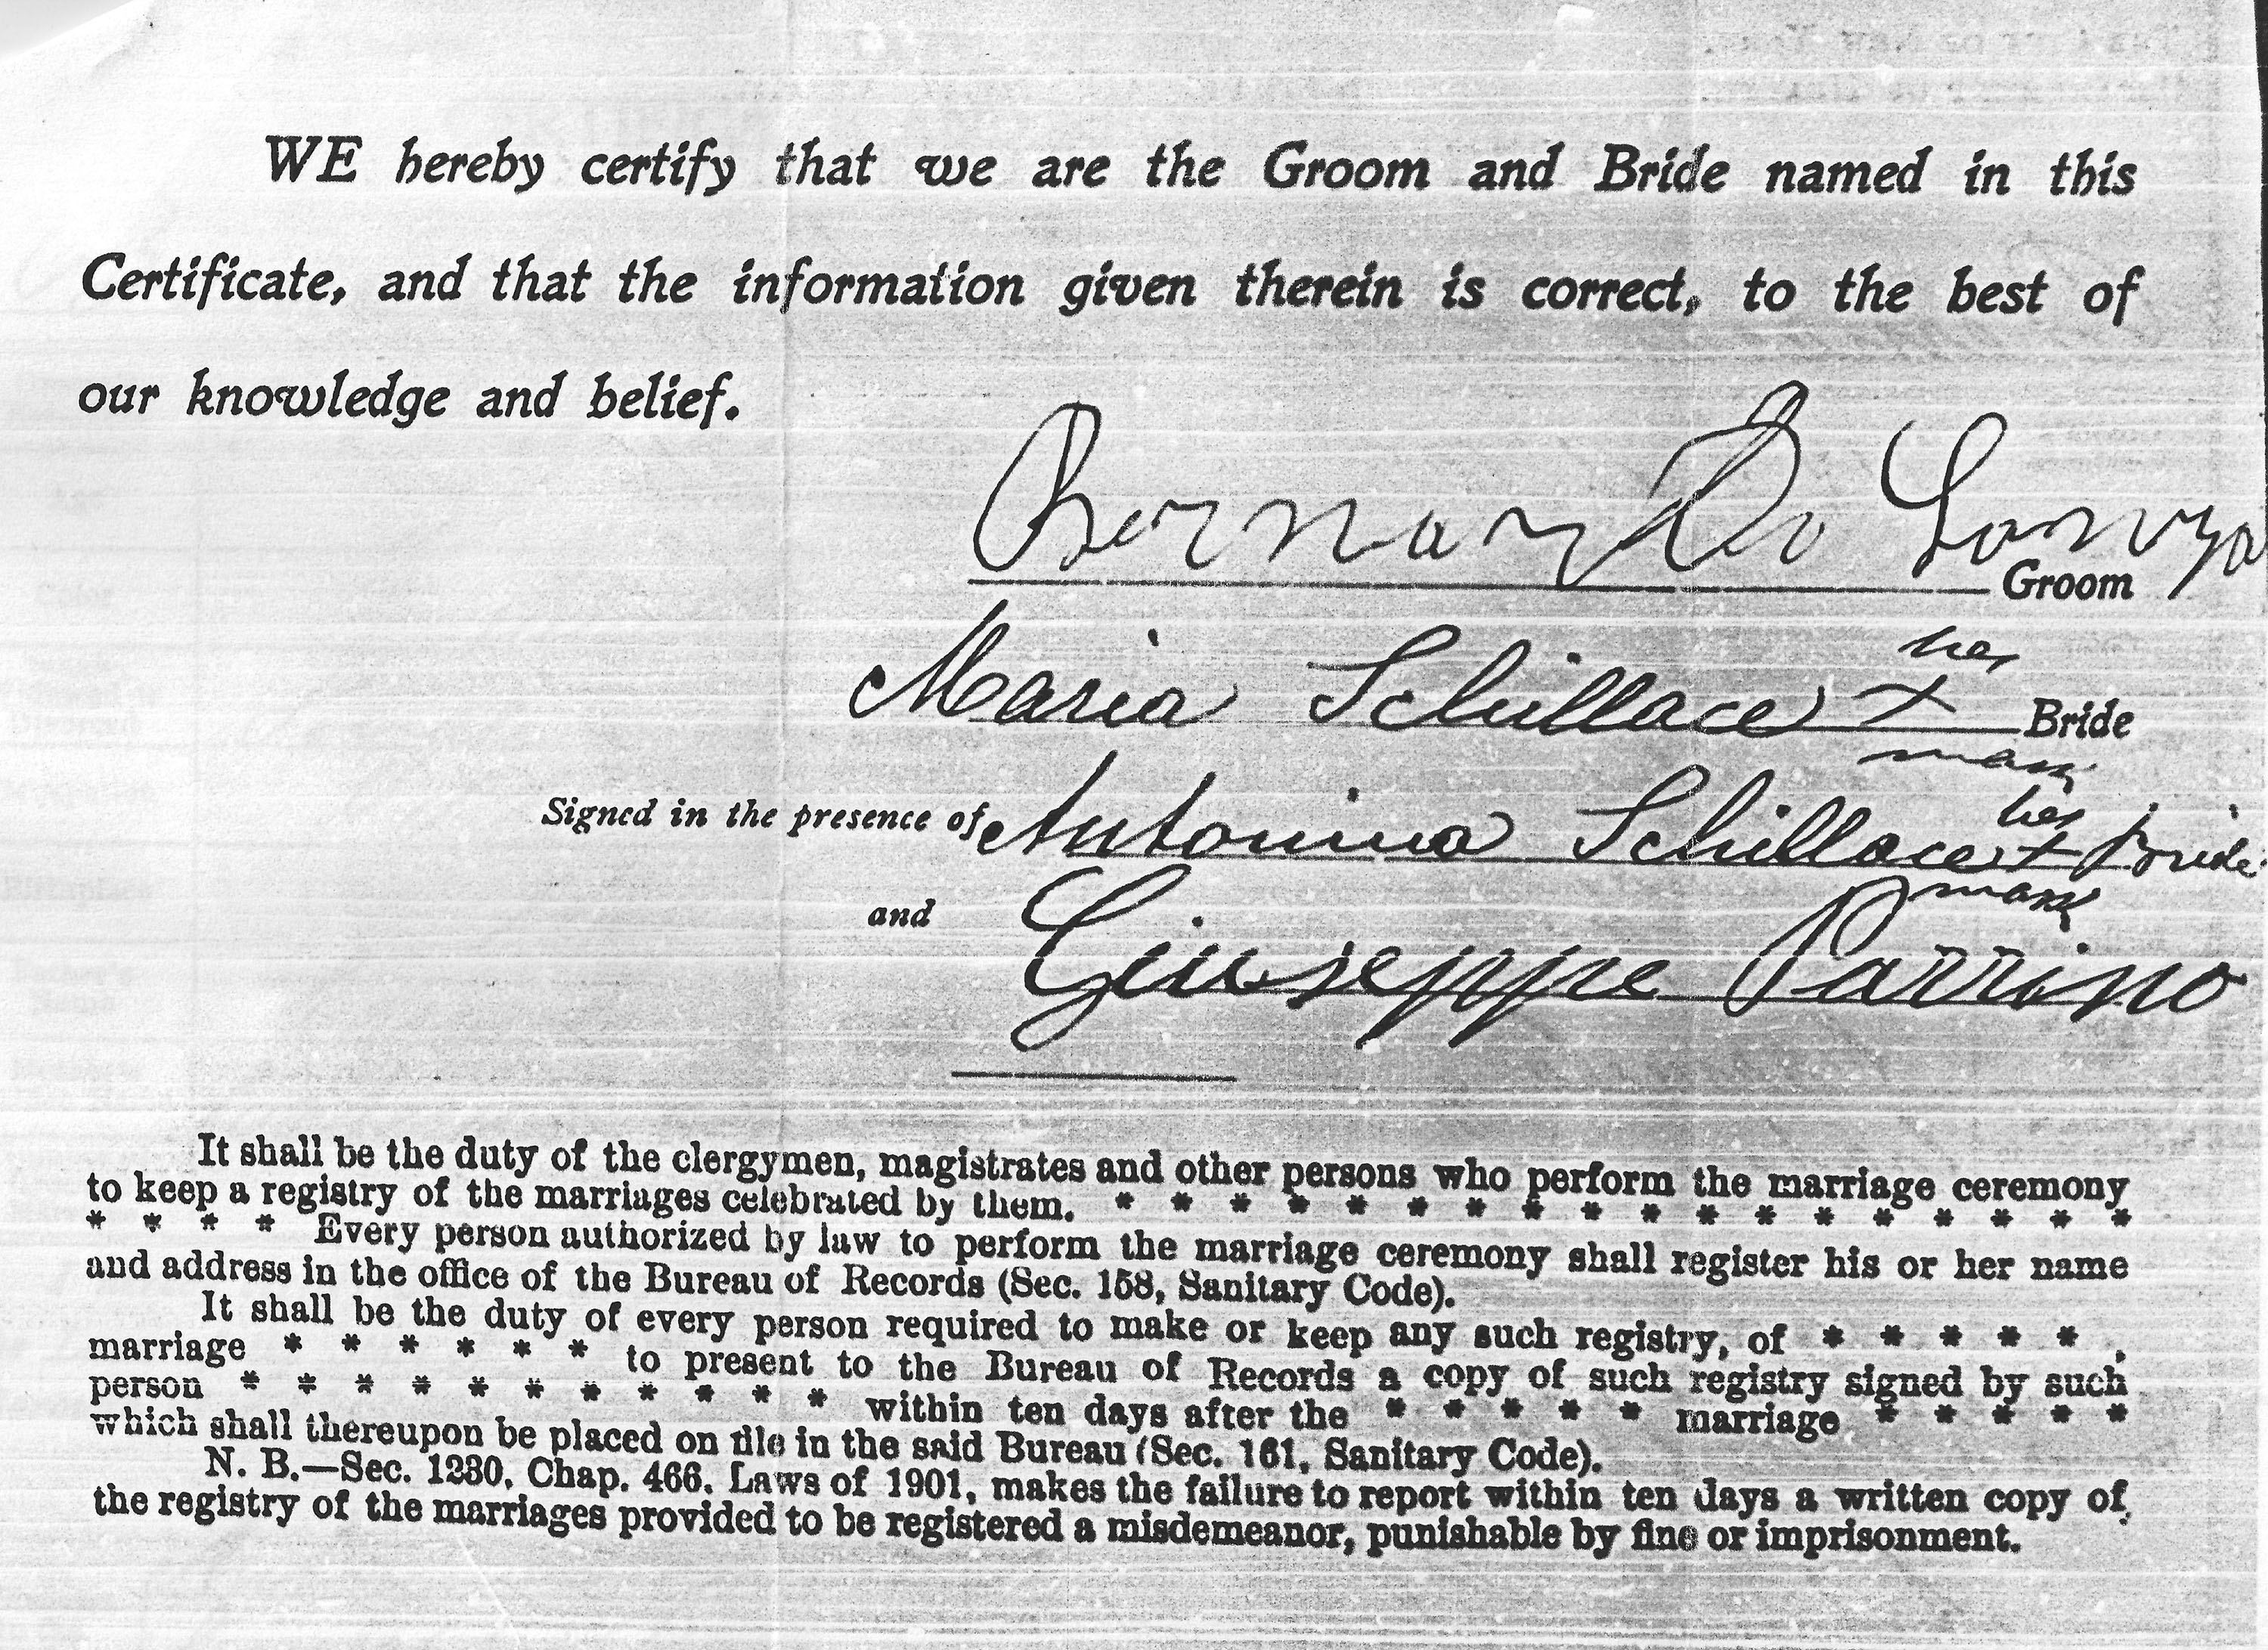 WE hereby certify that we are the Groom and Bride named in this
Certificate, and that the information given therein is correct, to the best of
our knowledge and belief.
BernarDo
Groom
her
Maria Schillace + Bride
mark
her
Signed in the presence of Antonina Schillace + Bride
mark
and Giuseppe Parrino
It shall be the duty of the clergymen, magistrates and other persons who perform the marriage ceremony
to keep a registry of the marriages celebrated by them. * * * * * * * * * * * * * * * * * *
* * * * Every person authorized by law to perform the marriage ceremony shall register his or her name
and address in the office of the Bureau of Records (Sec. 158, Sanitary Code).
It shall be the duty of every person required to make or keep any such registry, of * * * * * ,
marriage * * * * * * to present to the Bureau of Records a copy of such registry signed by such
person * * * * * * * * * * * within ten days after the * * * * * marriage * * * * *
which shall thereupon be placed on file in the said Bureau (Sec. 161, Sanitary Code).
N. B.—Sec. 1230, Chap. 466, Laws of 1901, makes the failure to report within ten days a written copy of
the registry of the marriages provided to be registered a misdemeanor, punishable by fine or imprisonment.